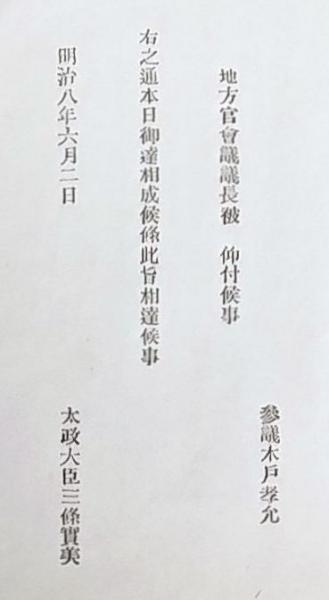 參議木戶孝允
地方官會議議長被　仰付候事
右之通本日御達相成候條此旨相達候事
明治八年六月二日
太政大臣三條實美